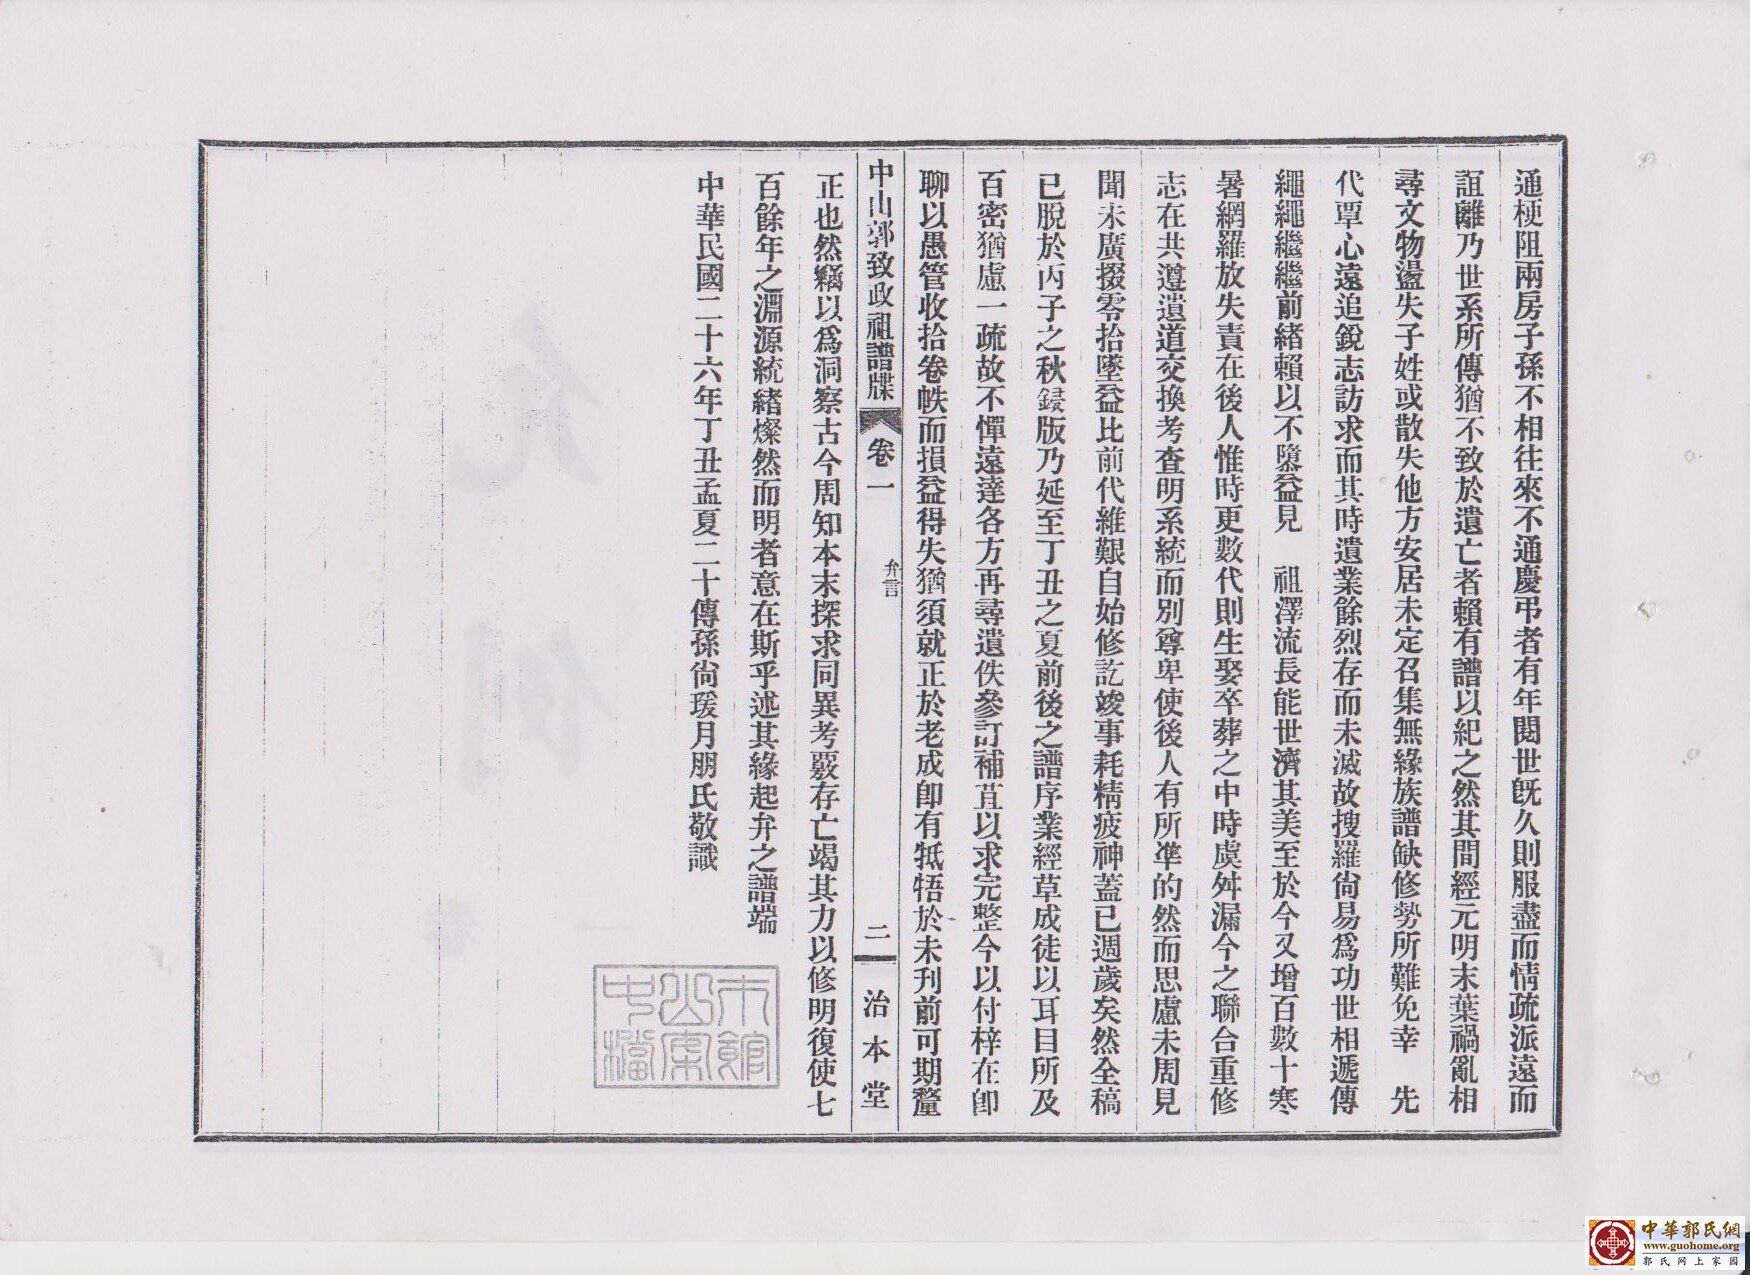 通梗阻兩房子孫不相往來不通慶弔者有年閱世旣久則服盡而情疏派遠而
誼離乃世系所傳猶不致於遺亡者賴有譜以紀之然其間經元明末葉禍亂相
尋文物盪失子姓或散失他方安居未定召集無緣族譜缺修勢所難免幸　先
代覃心遠追銳志訪求而其時遺業餘烈存而未滅故搜羅尙易爲功世相遞傳
繩繩繼繼前緒賴以不隳益見　祖澤流長能世濟其美至於今又增百數十寒
暑網羅放失責在後人惟時更數代則生娶卒葬之中時虞舛漏今之聯合重修
志在共遵遺道交換考查明系統而別尊卑使後人有所凖的然而思慮未周見
聞未廣掇零拾墜益比前代維艱自始修訖竣事耗精疲神蓋已週歲矣然全稿
已脫於丙子之秋鋟版乃延至丁丑之夏前後之譜序業經草成徒以耳目所及
百密猶慮一疏故不憚遠達各方再尋遺佚參訂補苴以求完整今以付梓在卽
聊以愚管收拾卷帙而損益得失猶須就正於老成卽有牴牾於未刊前可期釐
中山郭致政祖譜牒
卷一
弁言
二
治本堂
正也然竊以爲洞察古今周知本末探求同異考覈存亡竭其力以修明復使七
百餘年之淵源統緒燦然而明者意在斯乎述其緣起弁之譜端
中華民國二十六年丁丑孟夏二十傳孫尙瑗月朋氏敬識
中山市
檔案館
中華郭氏網
www.guohome.org
郭氏网上家园